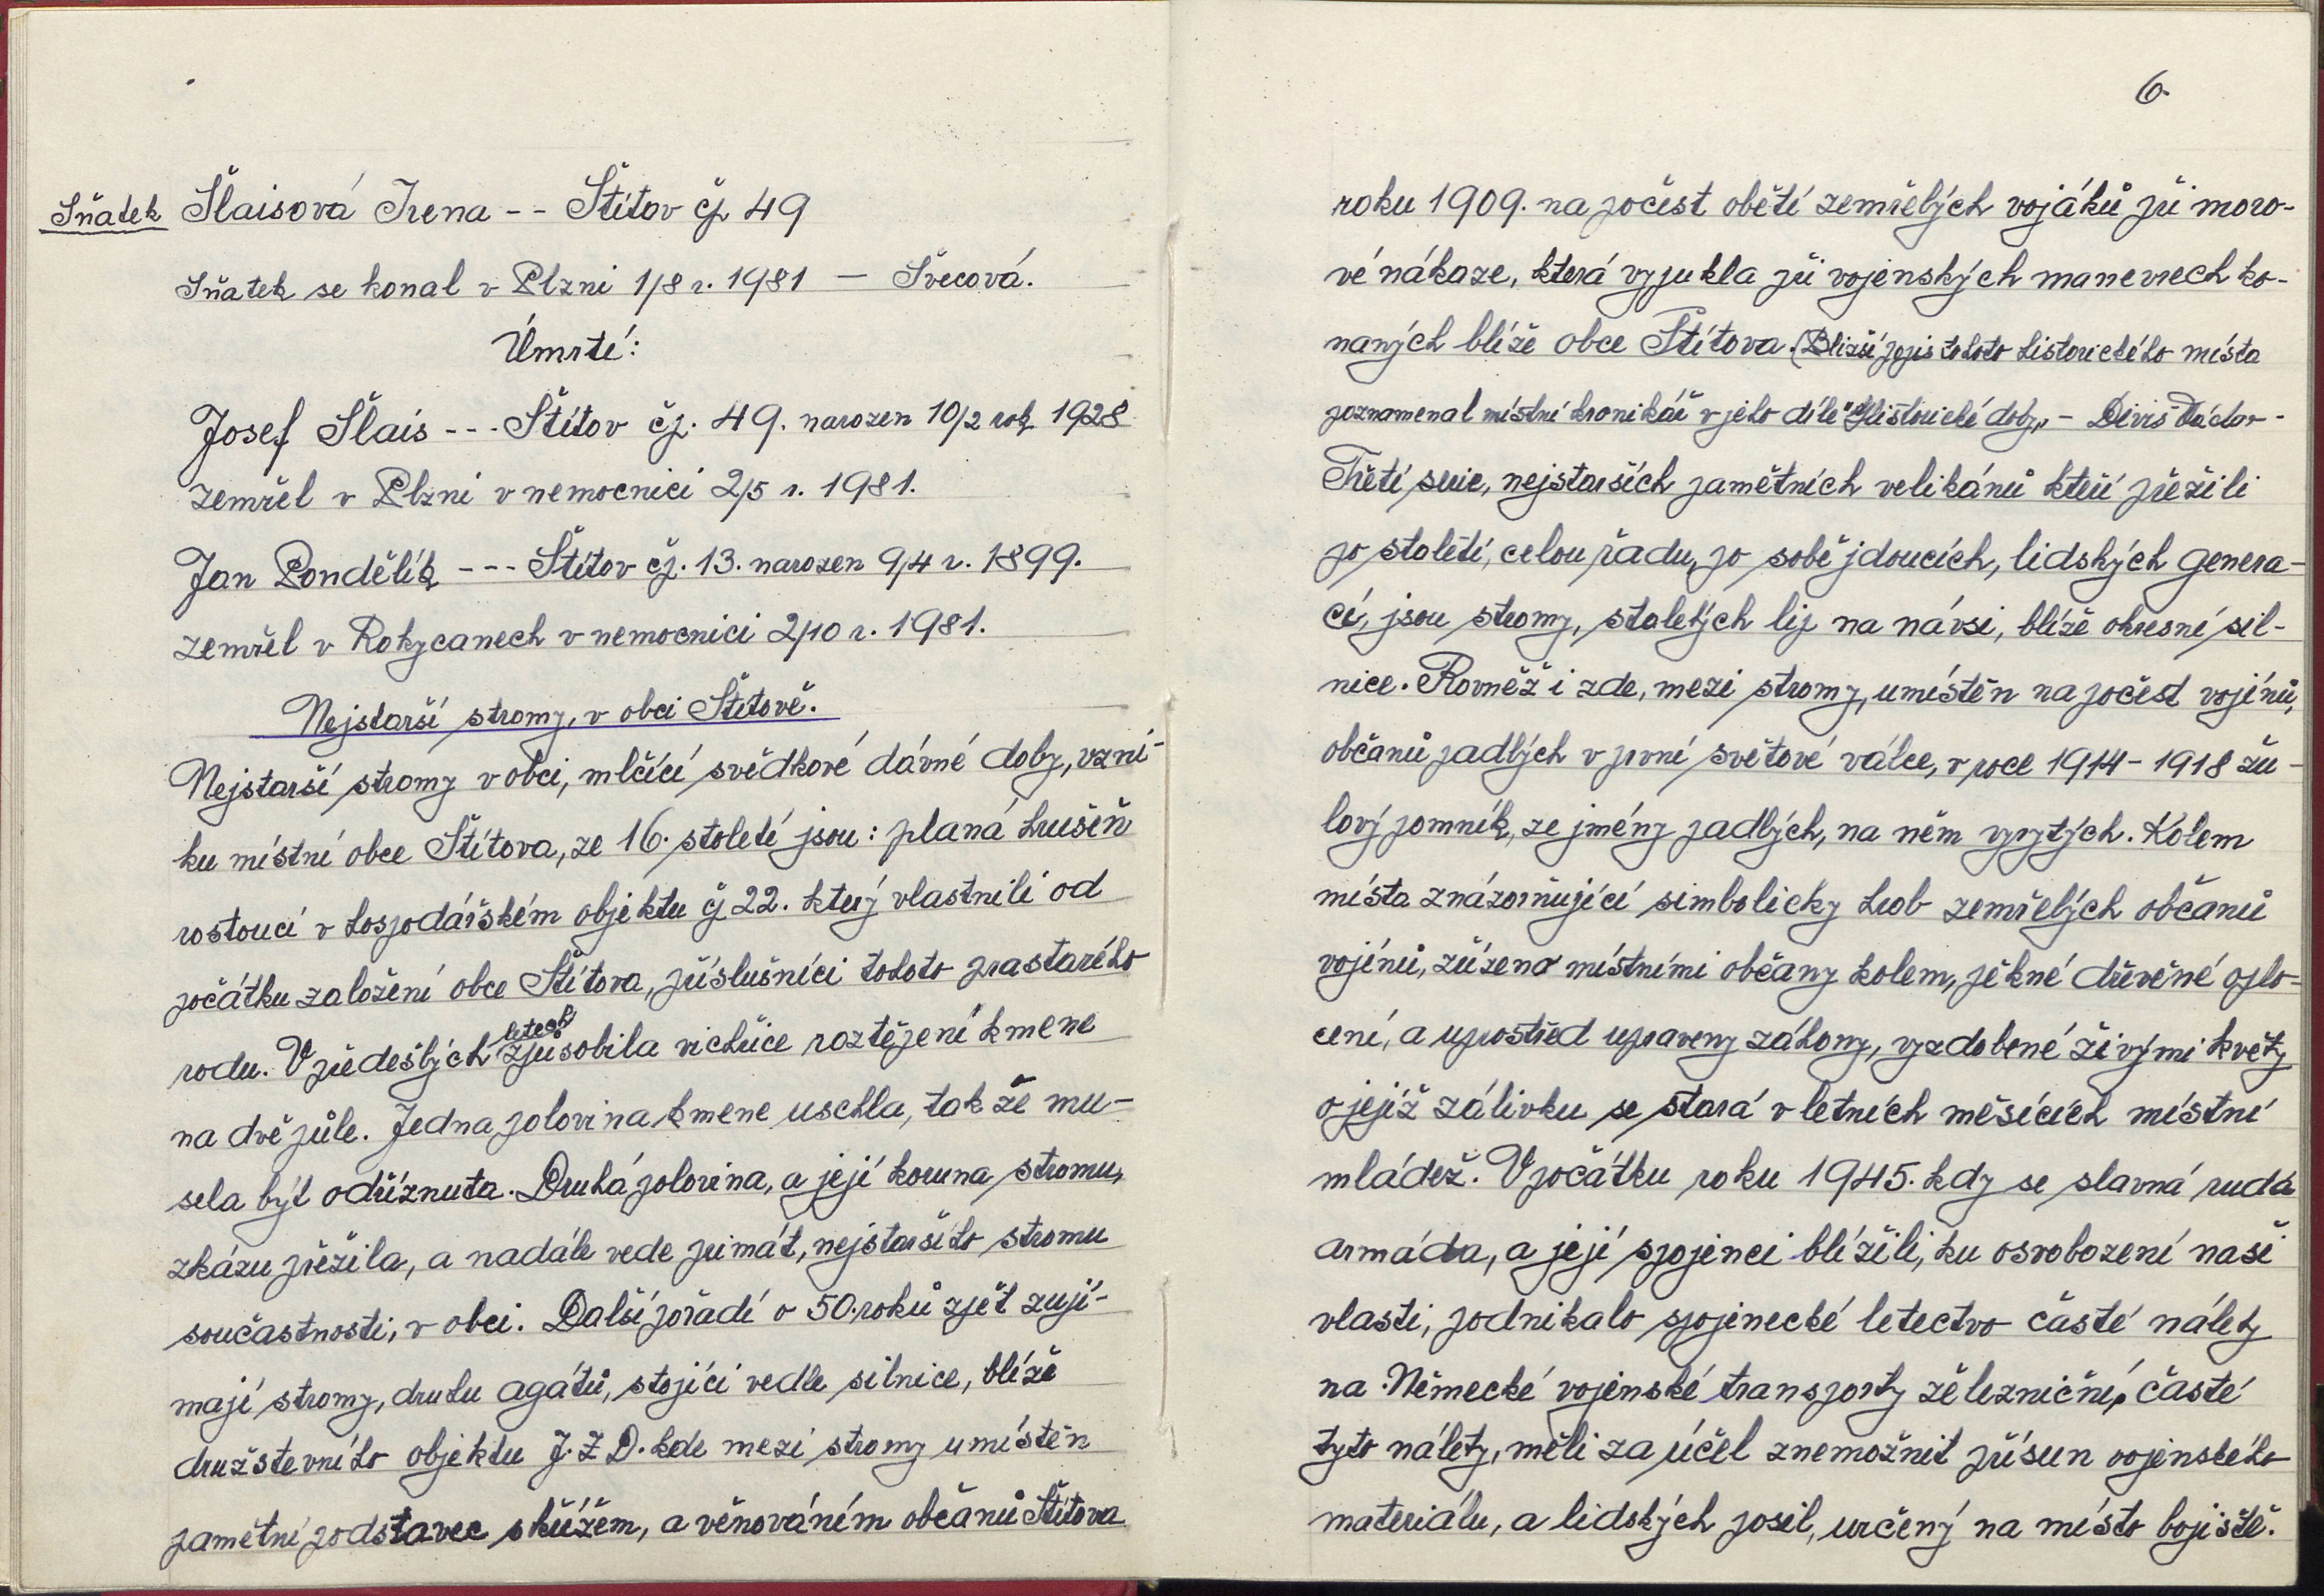 Sňatek Šlaisová Irena -- Štítov čp 49
Sňatek se konal v Plzni 1/8 r. 1981 — Švecová.
Úmrtí:
Josef Šlais --- Štítov čp. 49. narozen 10/2 rok 1928
zemřel v Plzni v nemocnici 2/5 r. 1981.
Jan Pondělík --- Štítov čp. 13. narozen 9/4 r. 1899.
zemřel v Rokycanech v nemocnici 2/10 r. 1981.
Nejstarší stromy, v obci Štítově.
Nejstarší stromy v obci, mlčící svědkové dávné doby, vzni-
ku místní obce Štítova, ze 16. století jsou: planá hrušeň
rostoucí v hospodářském objektu čp 22. který vlastnili od
počátku založení obce Štítova, příslušníci tohoto prastarého
rodu. V předešlých letech způsobila vichřice roztěpení kmene
na dvě půle. Jedna polovina kmene uschla, tak že mu-
sela být odříznuta. Druhá polovina, a její koruna stromu,
zkázu přežila, a nadále vede primát, nejstaršího stromu
součastnosti, v obci. Další pořadí o 50. roků zpět zují-
mají stromy, druhu agátů, stojící vedle silnice, blíže
družstevního objektu J.Z.D. kde mezi stromy umístěn
pamětní podstavec s křížem, a věnováním občanů Štítova
6
roku 1909. na počest obětí zemřelých vojáků při moro-
vé nákaze, která vypukla při vojenských manevrech ko-
naných blíže obce Štítova. (Bližší popis tohoto historického místa
poznamenal místní kronikář v jeho díle "Historické doby„ - Diviš Václav -
Třetí serie, nejstarších pamětních velikánů kteří přežili
po století, celou řadu, po sobě jdoucích, lidských genera-
cí, jsou stromy, staletých lip na návsi, blíže okresní sil-
nice. Rovněž i zde, mezi stromy, umístěn na počest vojínů,
občanů padlých v první světové válce, v roce 1914-1918 žu-
lový pomník, ze jmény padlých, na něm vyrytých. Kolem
místa znázorňující simbolicky hrob zemřelých občanů
vojínů, zřízeno místními občany kolem, pěkné dřevěné oplo-
cení, a uprostřed upraveny záhony, vyzdobené živými květy
o jejíž zálivku se stará v letních měsících místní
mládež. V počátku roku 1945. kdy se slavná rudá
armáda, a její spojenci blížili, ku osvobození naší
vlasti, podnikalo spojenecké letectvo časté nálety
na Německé vojenské transporty železniční, časté
tyto nálety, měli za účel znemožnit přísun vojenského
materiálu, a lidských posil, určený na místo bojiště.